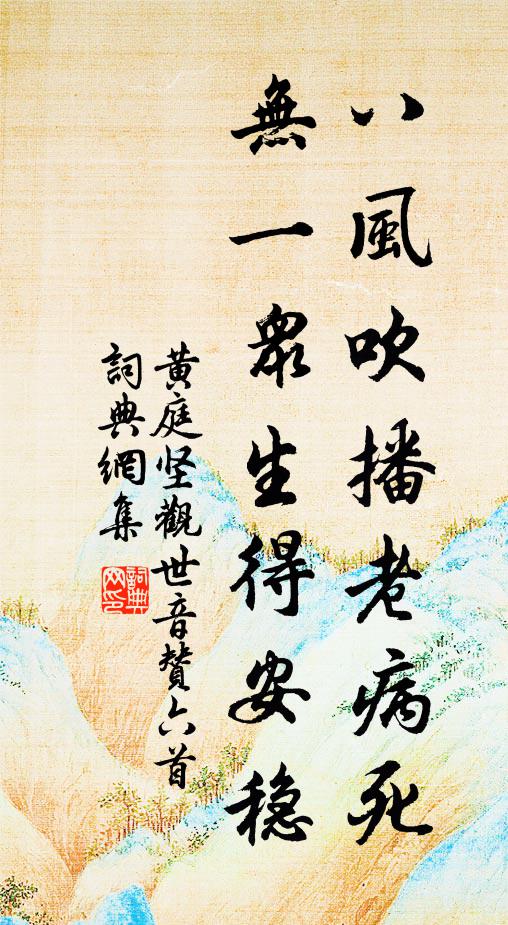 八風吹播老病死
無一眾生得安穩
黃庭坚觀世音贊六首
詞典網集
詞典
網印